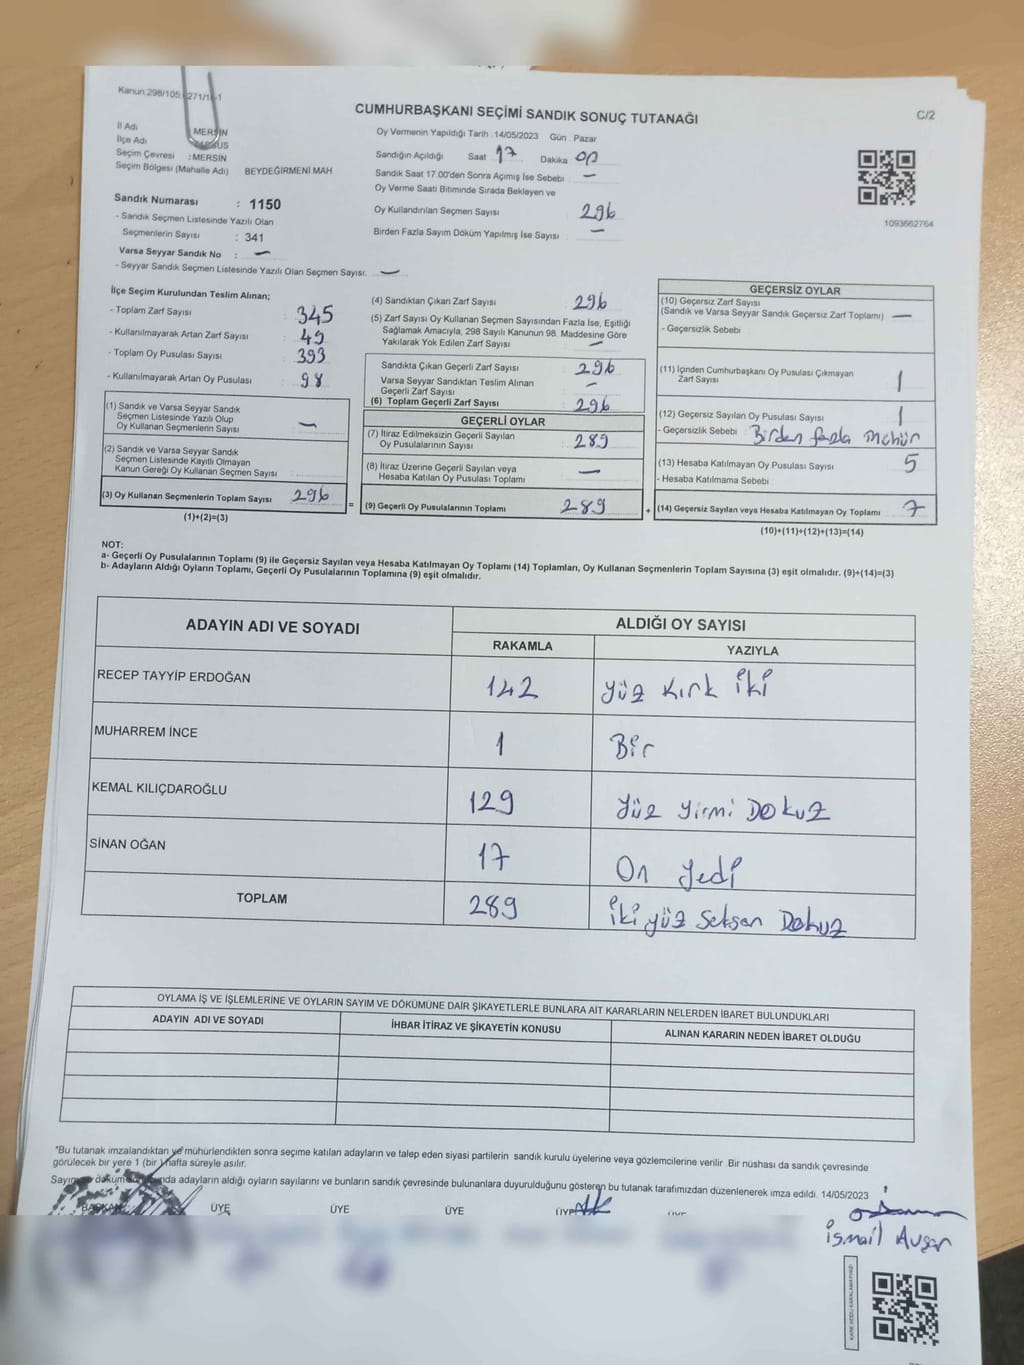 Kanun:298/105, 271/1-1
CUMHURBAŞKANI SEÇİMİ SANDIK SONUÇ TUTANAĞI
C/2
İl Adı MERSİN
İlçe Adı
Seçim Çevresi :MERSİN
Seçim Bölgesi (Mahalle Adı) BEYDEĞİRMENİ MAH
Oy Vermenin Yapıldığı Tarih :14/05/2023 Gün : Pazar
Sandığın Açıldığı Saat 17 Dakika 00
Sandık Saat 17.00'den Sonra Açımış İse Sebebi : —
Oy Verme Saati Bitiminde Sırada Bekleyen ve
Oy Kullandırılan Seçmen Sayısı 296
Birden Fazla Sayım Döküm Yapılmış İse Sayısı —
1093662764
Sandık Numarası : 1150
- Sandık Seçmen Listesinde Yazılı Olan
Seçmenlerin Sayısı : 341
Varsa Seyyar Sandık No : —
- Seyyar Sandık Seçmen Listesinde Yazılı Olan Seçmen Sayısı: —
İlçe Seçim Kurulundan Teslim Alınan;
- Toplam Zarf Sayısı : 345
- Kullanılmayarak Artan Zarf Sayısı : 49
- Toplam Oy Pusulası Sayısı : 393
- Kullanılmayarak Artan Oy Pusulası : 98
(1) Sandık ve Varsa Seyyar Sandık
Seçmen Listesinde Yazılı Olup
Oy Kullanan Seçmenlerin Sayısı : —
(2) Sandık ve Varsa Seyyar Sandık
Seçmen Listesinde Kayıtlı Olmayan
Kanun Gereği Oy Kullanan Seçmen Sayısı
(3) Oy Kullanan Seçmenlerin Toplam Sayısı 296
(1)+(2)=(3)
=
(4) Sandıktan Çıkan Zarf Sayısı 296
(5) Zarf Sayısı Oy Kullanan Seçmen Sayısından Fazla İse, Eşitliği
Sağlamak Amacıyla, 298 Sayılı Kanunun 98. Maddesine Göre
Yakılarak Yok Edilen Zarf Sayısı : —
Sandıkta Çıkan Geçerli Zarf Sayısı : 296
Varsa Seyyar Sandıktan Teslim Alınan
Geçerli Zarf Sayısı : —
(6) Toplam Geçerli Zarf Sayısı : 296
GEÇERLİ OYLAR
(7) İtiraz Edilmeksizin Geçerli Sayılan
Oy Pusulalarının Sayısı : 289
(8) İtiraz Üzerine Geçerli Sayılan veya
Hesaba Katılan Oy Pusulası Toplamı : —
(9) Geçerli Oy Pusulalarının Toplamı 289
+
GEÇERSİZ OYLAR
(10) Geçersiz Zarf Sayısı
(Sandık ve Varsa Seyyar Sandık Geçersiz Zarf Toplamı) : —
- Geçersizlik Sebebi :
(11) İçinden Cumhurbaşkanı Oy Pusulası Çıkmayan
Zarf Sayısı : 1
(12) Geçersiz Sayılan Oy Pusulası Sayısı : 1
- Geçersizlik Sebebi : Birden fazla mühür
(13) Hesaba Katılmayan Oy Pusulası Sayısı : 5
- Hesaba Katılmama Sebebi :
(14) Geçersiz Sayılan veya Hesaba Katılmayan Oy Toplamı : 7
(10)+(11)+(12)+(13)=(14)
NOT:
a- Geçerli Oy Pusulalarının Toplamı (9) ile Geçersiz Sayılan veya Hesaba Katılmayan Oy Toplamı (14) Toplamları, Oy Kullanan Seçmenlerin Toplam Sayısına (3) eşit olmalıdır. (9)+(14)=(3)
b- Adayların Aldığı Oyların Toplamı, Geçerli Oy Pusulalarının Toplamına (9) eşit olmalıdır.
ADAYIN ADI VE SOYADI ALDIĞI OY SAYISI
RAKAMLA YAZIYLA
RECEP TAYYİP ERDOĞAN 142 Yüz Kırk İki
MUHARREM İNCE 1 Bir
KEMAL KILIÇDAROĞLU 129 Yüz Yirmi Dokuz
SİNAN OĞAN 17 On Yedi
TOPLAM 289 İki yüz Seksen Dokuz
OYLAMA İŞ VE İŞLEMLERİNE VE OYLARIN SAYIM VE DÖKÜMÜNE DAİR ŞİKAYETLERLE BUNLARA AİT KARARLARIN NELERDEN İBARET BULUNDUKLARI
ADAYIN ADI VE SOYADI İHBAR İTİRAZ VE ŞİKAYETİN KONUSU ALINAN KARARIN NEDEN İBARET OLDUĞU
"Bu tutanak imzalandıktan ve mühürlendikten sonra seçime katılan adayların ve talep eden siyasi partilerin sandık kurulu üyelerine veya gözlemcilerine verilir .Bir nüshası da sandık çevresinde
görülecek bir yere 1 (bir) hafta süreyle asılır.
adayların aldığı oyların sayılarını ve bunların sandık çevresinde bulunanlara duyurulduğunu gösteren bu tutanak tarafımızdan düzenlenerek imza edildi. 14/05/2023
BAŞKAN ÜYE ÜYE ÜYE ÜYE
İsmail Avşar
KARE KODU KARALAMAYINIZ!